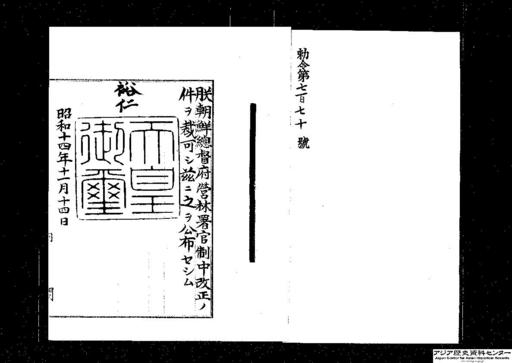 勅令第七百七十號
朕朝鮮總督府營林署官制中改正ノ
件ヲ裁可シ茲ニ之ヲ公布セシム
裕仁
天皇
御璽
昭和十四年十一月十四日
アジア歴史資料センター
Japan Center for Asian Historical Records